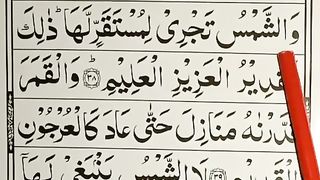 وَالشَّمْسُ تَجْرِىْ لِمُسْتَقَرٍّ لَّهَا ؕ ذٰلِكَ
تَقْدِيْرُ الْعَزِيْزِ الْعَلِيْمِ ﴿۳۸﴾ وَالْقَمَرَ
قَدَّرْنٰهُ مَنَازِلَ حَتّٰى عَادَ كَالْعُرْجُوْنِ
الْقَدِيْمِ ﴿۳۹﴾ لَا الشَّمْسُ يَنْۢبَغِىْ لَهَاۤ